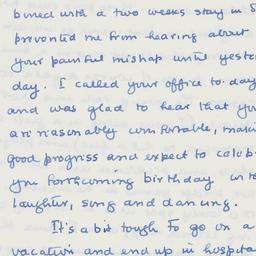 bined with a two weeks stay in S
prevented me from hearing about
your painful mishap until yeste
day. I called your office to-day
and was glad to hear that you
are reasonably comfortable, makin
good progress and expect to celeb-
your forthcoming birthday with
laughter, song and dancing.
It's a bit tough to go on a
vacation and end up in hospita